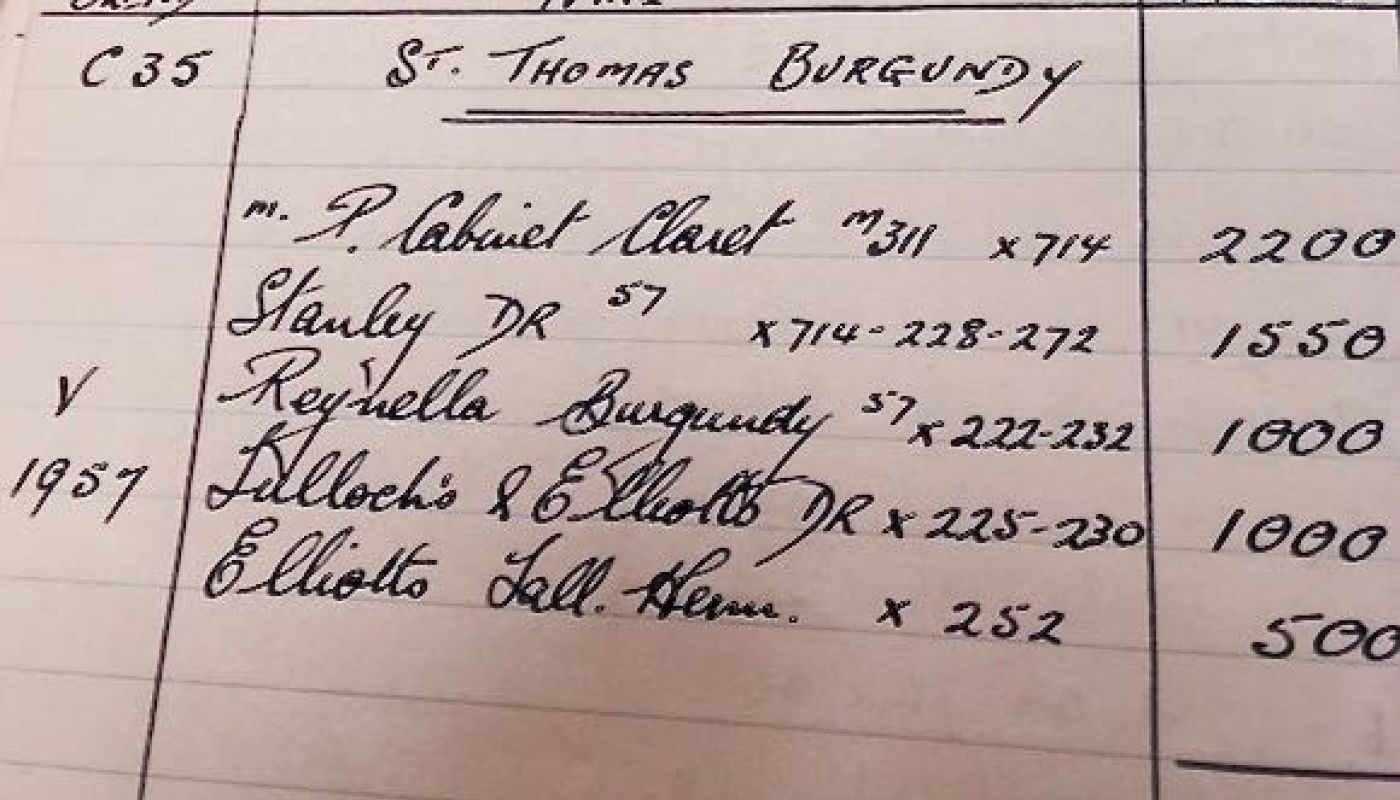 C35 St. Thomas Burgundy
m. P. Cabinet Claret m311 x714 2200
Stanley DR 57 x714-228-272 1550
V Reynella Burgundy 57 x222-232 1000
1957 Tulloch's & Elliotts DR x225-230 1000
Elliotts Tall. Herm. x 252 500